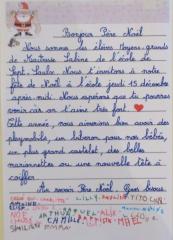 Bonjour Père Noël
Nous sommes les élèves Moyens-grands de
Maîtresse Sabine de l'école Le
Sept-Saulx. Nous t'invitons à notre
fête de Noël à l'école jeudi 15 décembre
après-midi. Nous espérons que tu pourras
venir car on t'aime très fort.
Cette année, nous aimerions bien avoir des
playmobils, un biberon pour nos bébés,
un plus grand castelet, des belles
marionnettes ou une nouvelle tête à
coiffer.
Au revoir Père Noël. Gros bisous.
LILLY TITO
NOÉ ARTHUR ALIX
CAMILLE MAËL